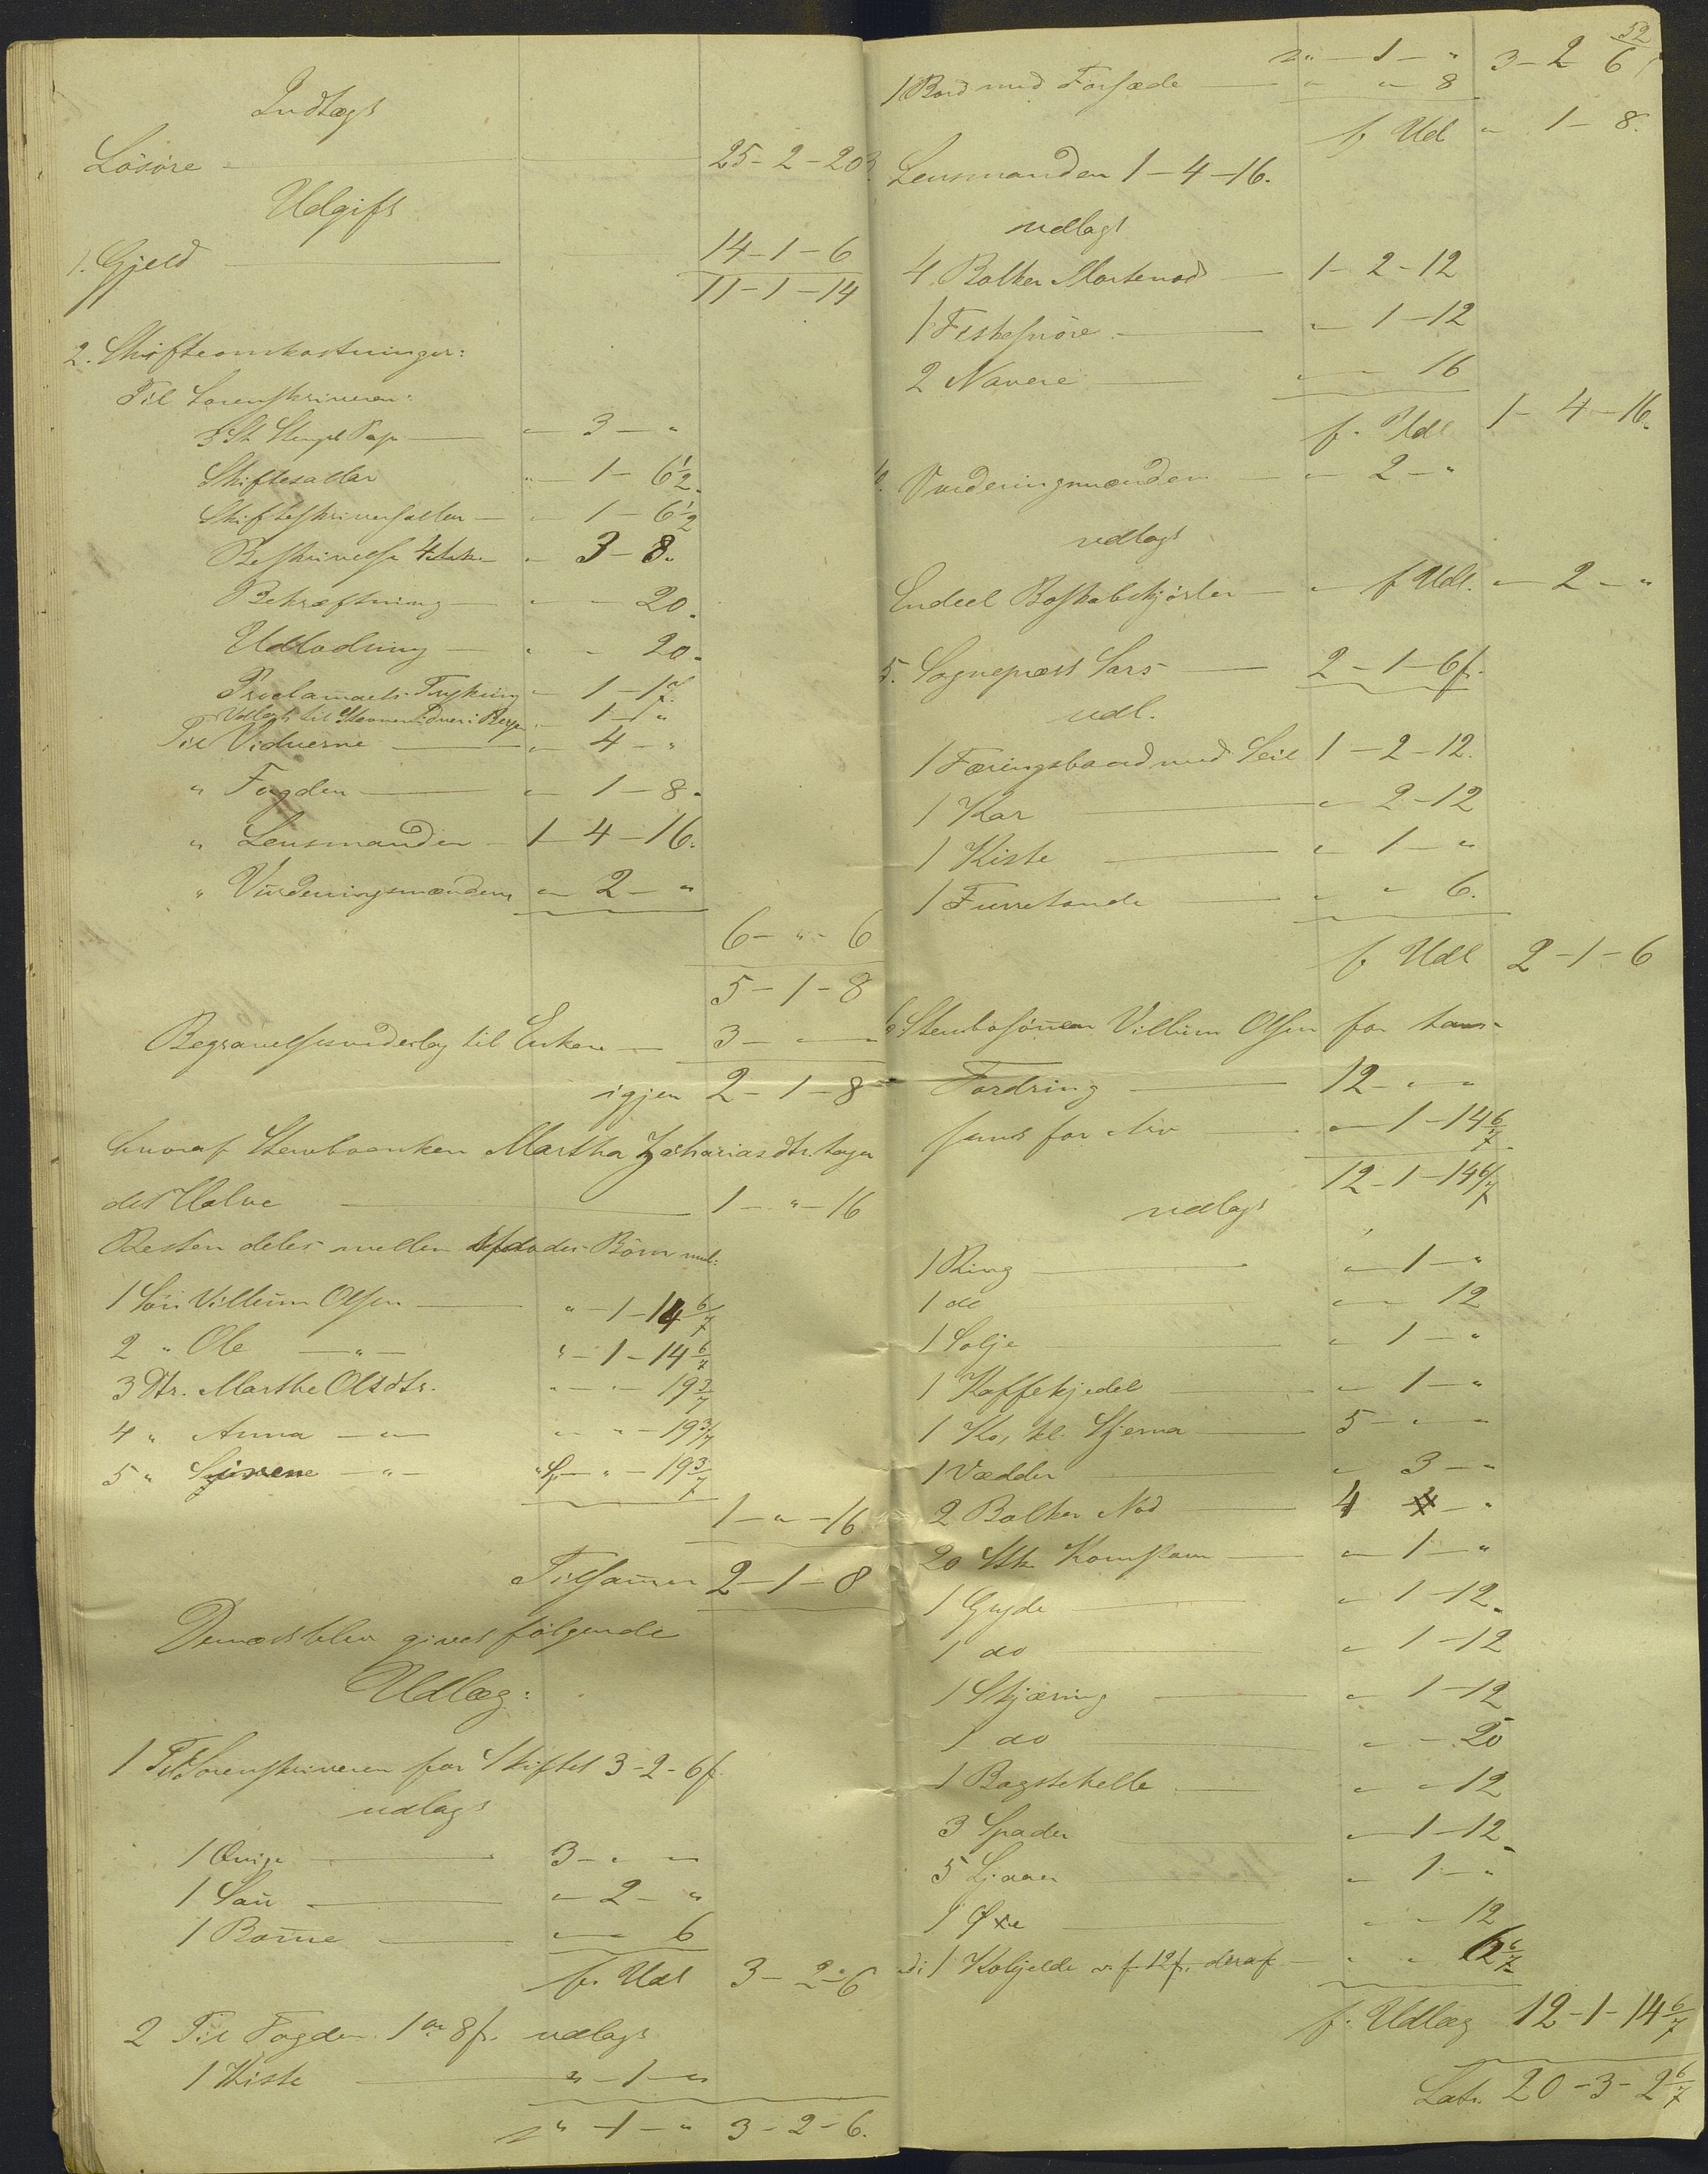 Indtægt
Løsöre — 25-2-20
Udgift
1. Gjeld — 14-1-6
11-1-14
2. Skifteomkostninger:
Til Sorenskriveren:
3 St Stempl. Pap — " 3 — "
Skiftesallar " — 1 — 6½
Skifteskriversallar — " — 1 — 6½
Beskrivelse — " 3 — 8.
Bekræftning — " — 20.
Udlodning — " - 20.
Proclamaets Trykning " 1 —
1 — "
Til Vidnerne — " 4 — "
" Fogden — " 1 — 8.
" Lensmanden — 1 — 4 — 16.
" Vurderingsmændene " 2 — "
6 — " — 6
5 — 1 — 8
Begravelsesvederlag til Enken — 3 — " — "
igjen 2 — 1 — 8
hvoraf Stervboenken Martha Zachariasdtr. tager
det Halve — 1 — " — 16
Resten deles mellem Afdødes Börn med:
1 Sön Villum Olsen — " — 1 — 14 6/7
2 " Ole — " — " — 1 — 14 6/7
3 Dtr. Marthe Olsdtr. " — " — 19 3/7
4 " Anna — " — " — " — 19 3/7
5 " — " — " — 19 3/7
1 — " — 16
Tilsamen 2 — 1 — 8
Dernæst blev givet følgende
Udlæg:
1 Til Sorenskriveren for Skiftet 3-2-6 f.
udlagt
1 Qvige — 3 — " — "
1 Sau — " 2 — "
1 Bomme — " — " 6
f. Udl 3 — 2 — 6
2 Til Fogden 1 ort 8 f. udlagt
1 Kiste — " — 1 — "
" — 1 — " 3 — 2 — 6.
52
" — 1 — " 3 — 2 6
1 Bord med Forsæde — " " 8
f. Udl " 1 — 8.
Lensmanden 1 — 4 — 16.
udlagt
4 Bolker Mortenod — 1 — 2 — 12
1 Fiskesnöre — " 1 — 12
2 Navere — " — 16
f. Udl 1 — 4 — 16.
Vurderingsmænden — " 2 — "
udlagt
Endeel Boskabskjörler — " f Udl. " 2 — "
5. Sognepræst Sars — 2 — 1 — 6 f.
udl.
1 Færingsbaad med Seil 1 — 2 — 12.
1 Kar — " 2 — 12
1 Kiste — " 1 — "
1 Furretønde — " " 6.
f. Udl 2 — 1 — 6
6 Stervbosönnen Villum Olsen for hans
Fordring — 12 — " — "
samt for Arv — " 1 — 14 6/7
12 — 1 — 14 6/7
udlagt
1 Ring — " 1 — "
1 do " — 12
1 Solje — " 1 — "
1 Kaffekjedel — " 1 — "
1 Ko, kl. Stjerna — 5 — " — "
1 Vædder — " 3 — "
2 Bolker Nod — 4 — "
20 Stk. — " 1 — "
1 Gryde — " 1 — 12.
1 do — " 1 — 12
1 Skjæring — " 1 — 12
1 do — " — 20
1 Bagstehelle — " — 12
3 Spader — " 1 — 12
5 Ljaaer — " 1 — "
1 Øxe — " — 12
1 Kobjelde v. f. 12 f., deraf — " " 6 6/7
f. Udlæg 12 — 1 — 14 6/7
Lats. 20 — 3 — 2 6/7